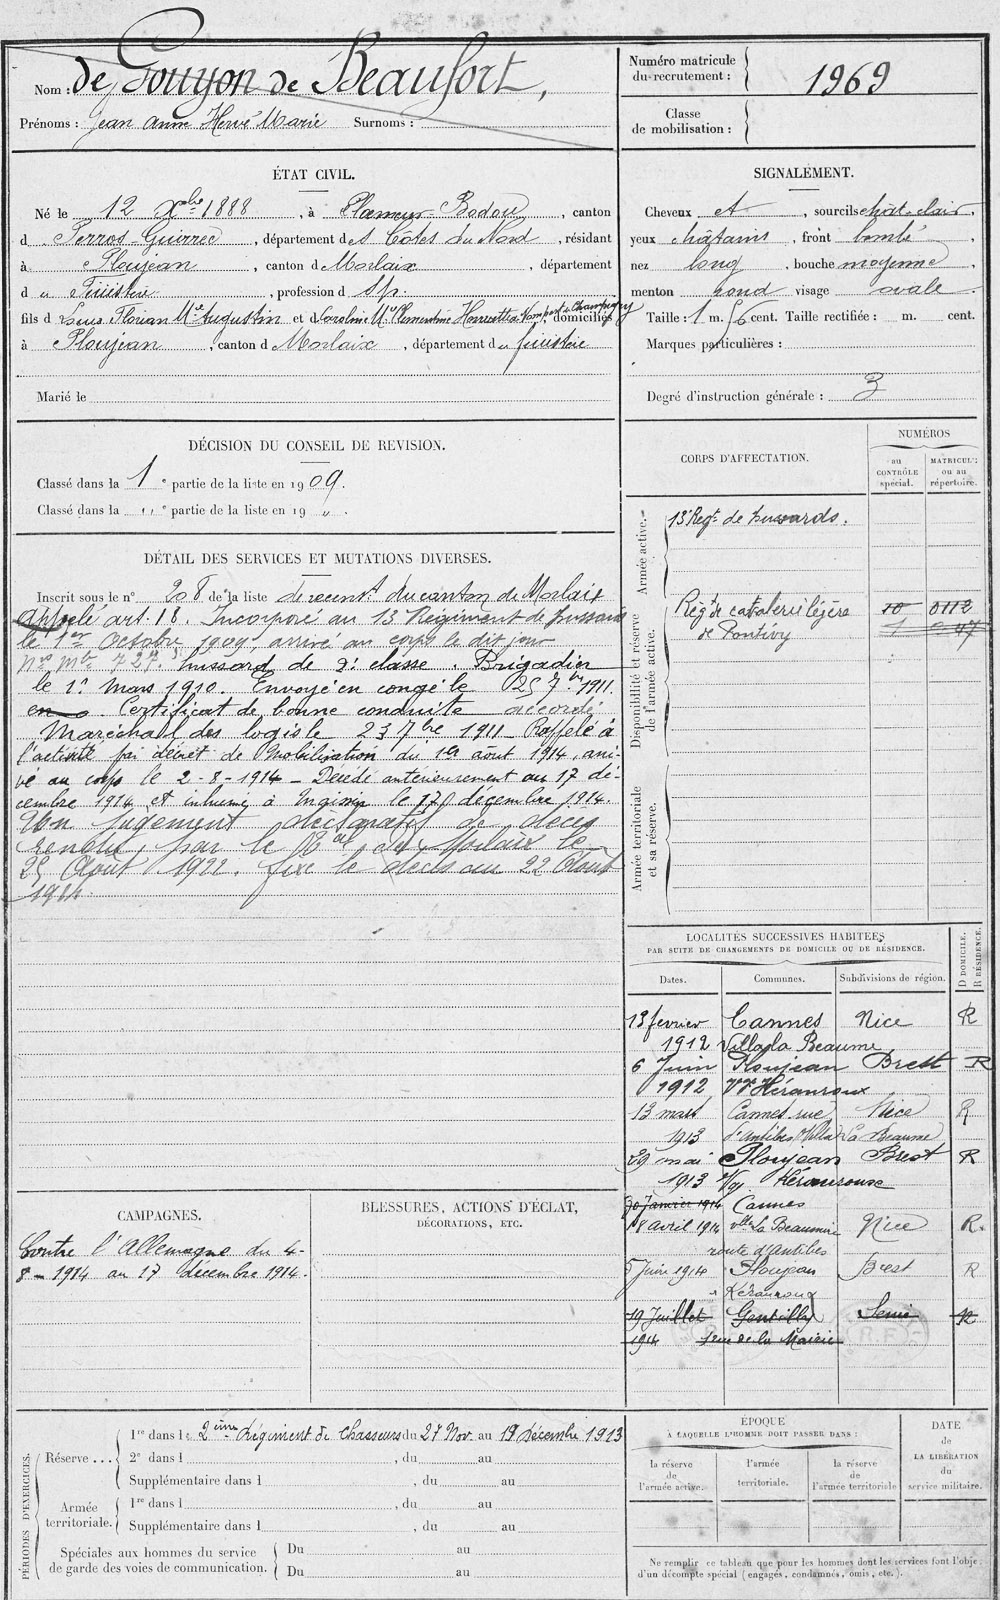 Nom : de Gouyon de Beaufort,
Prénoms : Jean Anne Hervé Marie Surnoms :
Numéro matricule du recrutement : 1969
Classe de mobilisation :
ÉTAT CIVIL.
Né le 12 Xbre 1888, à Pleumeur-Bodou, canton
d Perros-Guirrec, département des Côtes du Nord, résidant
à Ploujean, canton d Morlaix, département
d u Finistère, profession d sp.
fils d Louis Florian Mie Augustin et d Caroline Mie Clémentine Henriette de, domiciliés
à Ploujean, canton d Morlaix, département d u finistère
Marié le
SIGNALEMENT.
Cheveux ct, sourcils chât-clair,
yeux châtains, front bombé,
nez long, bouche moyenne,
menton rond visage ovale.
Taille : 1 m. 56 cent. Taille rectifiée : m. cent.
Marques particulières :
Degré d'instruction générale : 3
DÉCISION DU CONSEIL DE REVISION.
Classé dans la 1 e partie de la liste en 1909.
Classé dans la " e partie de la liste en 19 " .
CORPS D'AFFECTATION.
NUMÉROS
au CONTRÔLE spécial.
MATRICULE ou au répertoire.
Armée active.
13e Regt de hussards.
Disponibilité et réserve de l'armée active.
Régt de cavalerie légère 10 0112
de Pontivy 1 47
Armée territoriale et sa réserve.
DÉTAIL DES SERVICES ET MUTATIONS DIVERSES.
Inscrit sous le n° 208 de la liste de recent du canton de Morlaix
Appelé art. 18. Incorporé au 13 Régiment de hussards
le 1er Octobre 1909, arrivé au corps le dit jour
No Mle 727. hussard de 2e classe. Brigadier
le 1er Mars 1910. Envoyé en congé le 25 7bre 1911.
en Certificat de bonne conduite accordé
Maréchal des logis le 23 7bre 1911 - Rappelé à
l'activité par décret de Mobilisation du 1er août 1914, arri-
vé au corps le 2-8-1914 - Décédé antérieurement au 17 dé-
cembre 1914 et inhumé à le 17 décembre 1914.
Un jugement déclaratif de décès
rendu par le de Morlaix le
25 Août 1922, fixe le décès au 22 Août
1914.
LOCALITÉS SUCCESSIVES HABITÉES
PAR SUITE DE CHANGEMENTS DE DOMICILE OU DE RÉSIDENCE.
Dates. Communes. Subdivisions de région. D DOMICILE. R RÉSIDENCE.
13 fevrier Cannes Nice R
1912 Villa la Beaume
6 Juin Ploujean Brest R
1912 Héranroux
13 mars Cannes rue Nice R
1913 d'Antibes Villa La Beaume
29 mai Ploujean Brest R
1913 Kéranroux
30 Janvier 1914 Cannes
18 avril 1914 villa La Beaume Nice R.
route d'Antibes
5 Juin 1914 Ploujean Brest R
Kéranroux
19 Juillet Gentilly Seine R
1914 1 rue de la Mairie
CAMPAGNES.
Contre l'Allemagne du 4-
8-1914 au 17 décembre 1914.
BLESSURES, ACTIONS D'ÉCLAT,
DÉCORATIONS, ETC.
PÉRIODES D'EXERCICES.
Réserve...
1re dans le 2ème Régiment de Chasseurs du 27 Nov. au 19 Décembre 1913
2e dans l , du au
Supplémentaire dans l , du au
Armée territoriale.
1re dans l , du au
Supplémentaire dans l , du au
Spéciales aux hommes du service de garde des voies de communication.
Du au
Du au
ÉPOQUE
À LAQUELLE L'HOMME DOIT PASSER DANS :
la réserve de l'armée active.
l'armée territoriale.
la réserve de l'armée territoriale
DATE DE LA LIBÉRATION du service militaire.
Ne remplir ce tableau que pour les hommes dont les services font l'objet
d'un décompte spécial (engagés, condamnés, omis, etc.).